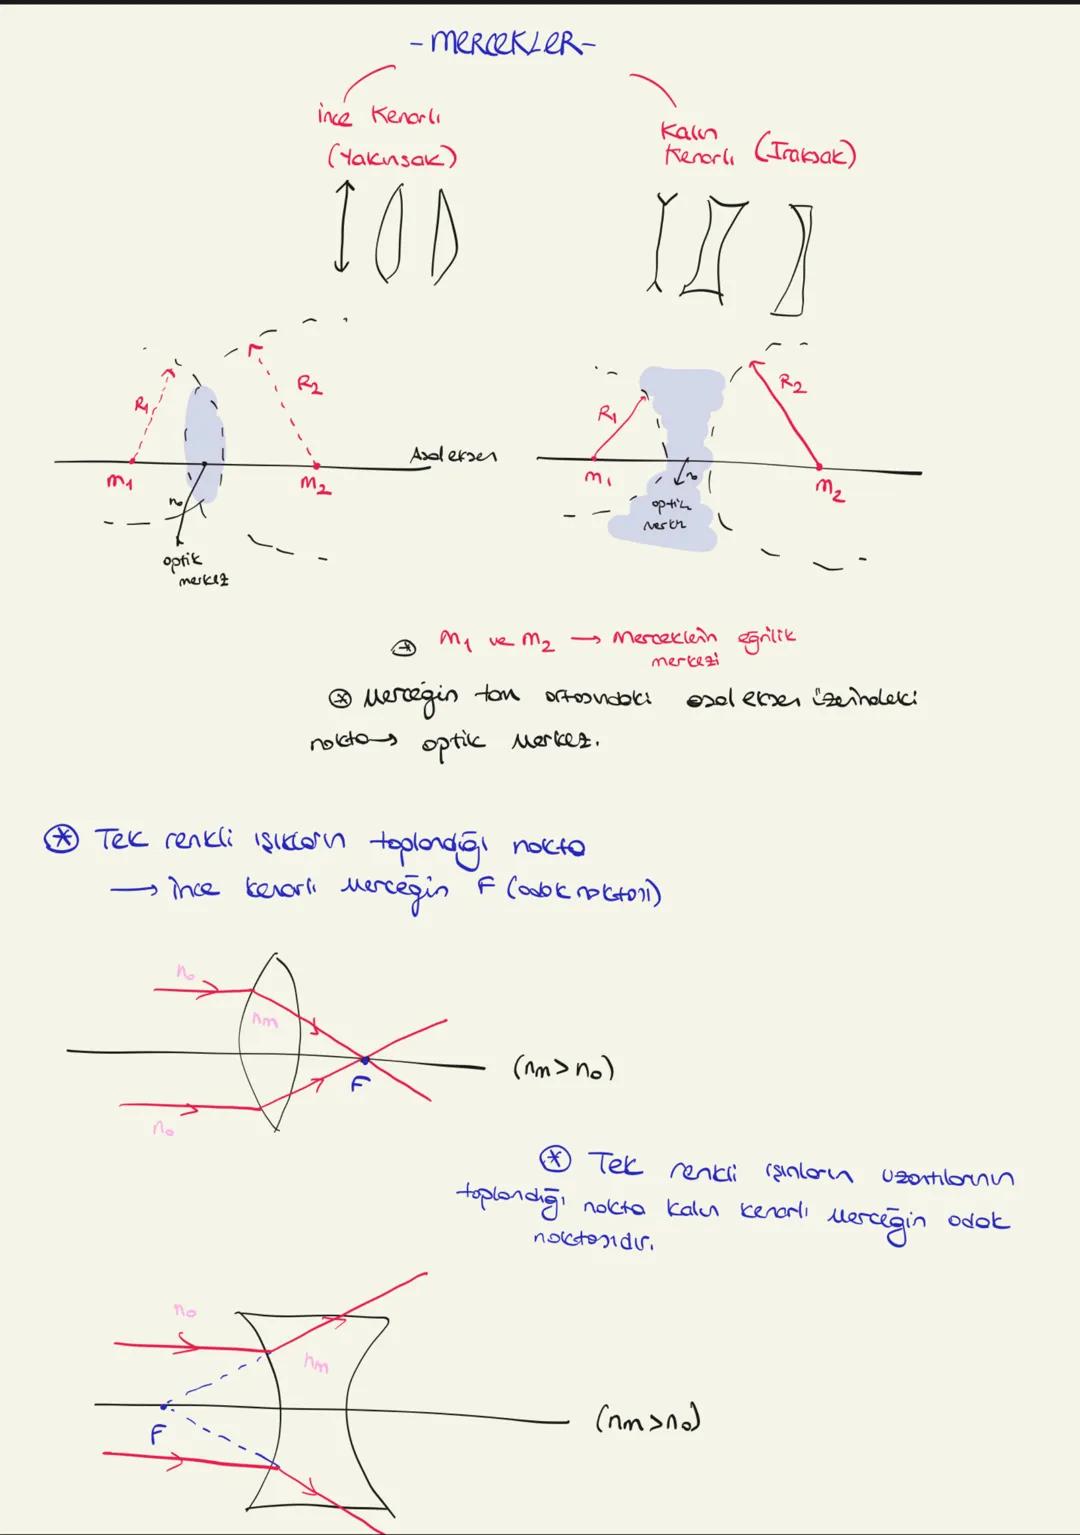 - MERCEKLER -
İnce Kenarlı
(Yakınsak)
Kalın
Kenarlı (Iraksak)
R1
R2
R1
R2
Asal eksen
m1
m2
m1
m2
n0
optik
merkez
optik
⊛ m1 ve m2 → Merceklerin eğrilik
merkezi
⊛ Merceğin tam ortasındaki asal eksen üzerindeki
nokta → optik Merkez.
⊛ Tek renkli ışıkların toplandığı nokta
→ İnce kenarlı Merceğin F (odak noktası)
n0
nm
F
(nm > n0)
n0
⊛ Tek renkli ışınların uzantılarının
toplandığı nokta kalın kenarlı Merceğin odak
noktasıdır.
n0
nm
F
(nm > n0)